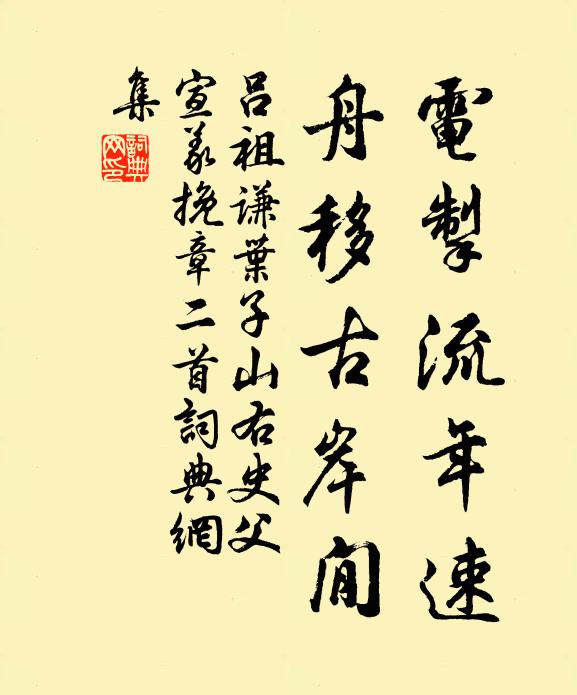 電掣流年速
舟移古岸閒
呂祖謙葉子山右史父
宣義挽章二首詞典網
集
詞典網印